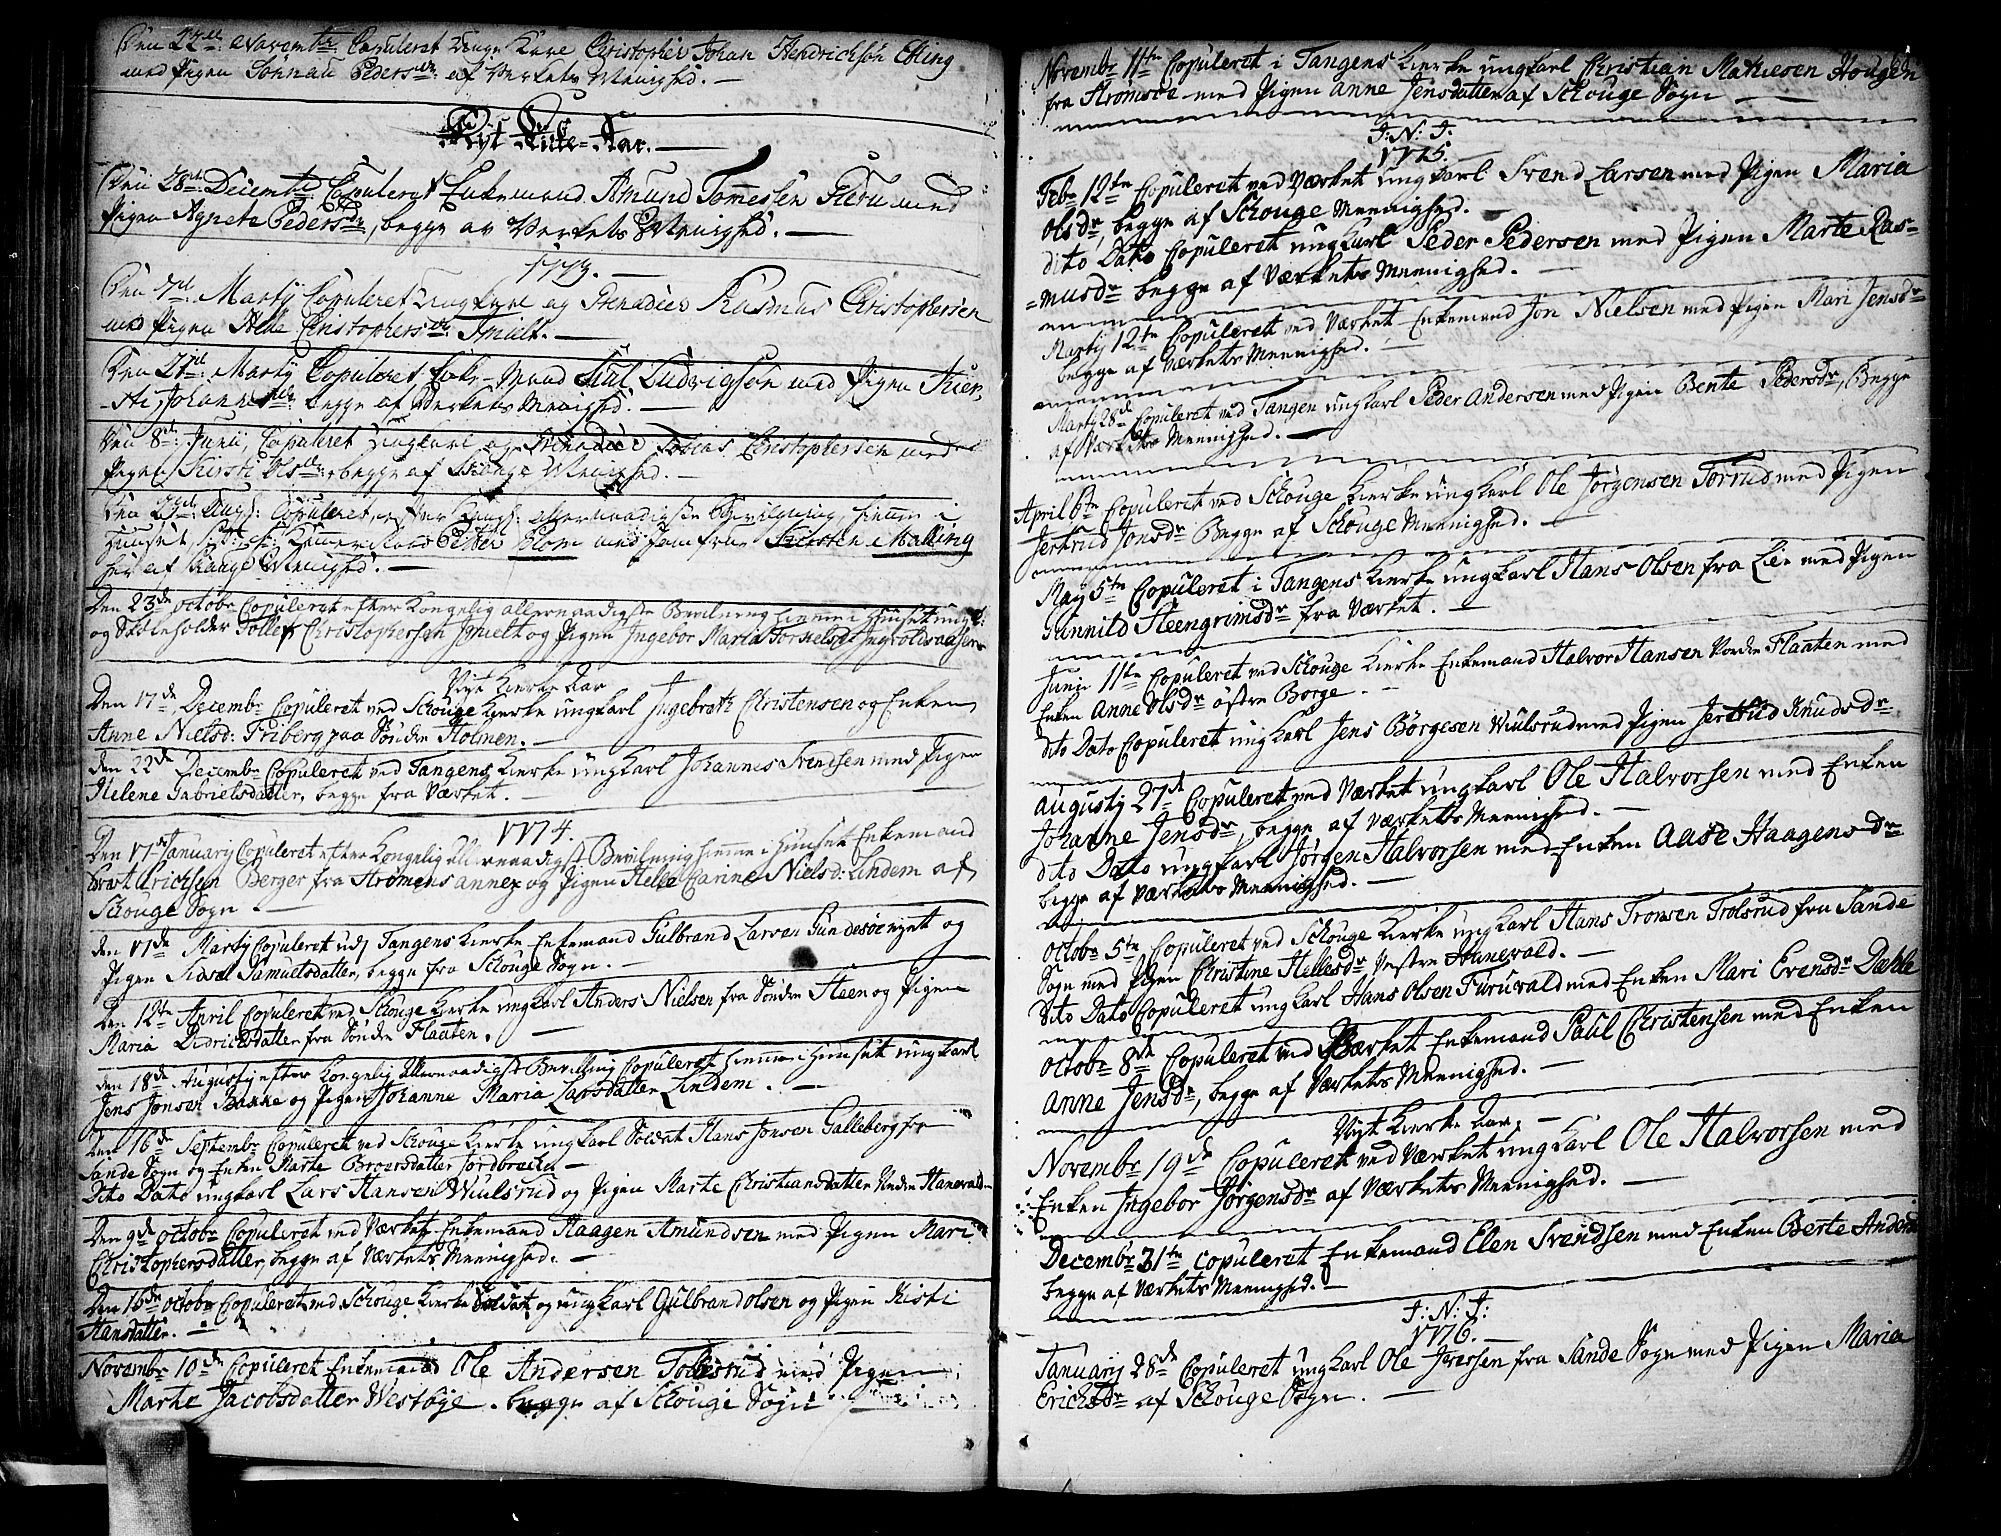 Den 22de Novembr: Copuleret Unge Karl Christopher Johan Hendrichsøn
med Pigen Pedersdr: af Verkets Menighed. —
Nyt Kirke-Aar. —
Den 28de: Decembr Copuleret Enkemand Amund med
Pigen Agnete Pedersdr, begge av Verkets Menighed. —
1773. —
Den 7de: Martij Copuleret Ungkarl og Grenadier Rasmus Christophersen
med Pigen Christophersdr: Smidt. —
Den 21de: Martij Copuleret Enke-Mand Ludvigsøn med Pigen Kier-
sti Johannesdr: begge af Verkets Menighed. —
Den 8de: Junii, Copuleret Ungkarl og Grenadier Tobias Christophersen med
Pigen Kirsti Olsdr: begge af Skouge Menighed. —
Den Aug: Copuleret, efter Kongl: allernaadigste Bevilgning hiemme i
Huuset, Petter Blom med Jomfrue Kiersten Malling
her af Skouge Menighed. —
Den 23de octobr Copuleret efter Kongelig allernaadigste Bevilning hiemme i Huuset ungk:
og Skoleholder Tollef Christophersen Smidt og Pigen Ingebor Maria
Nyt Kierke Aar
Den 17de Decembr Copuleret ved Schouge Kierke ungkarl Ingebreth Christensen og Enken
Anne Nielsd: Friberg paa Søndre Holmen. —
den 22de Decembr Copuleret ved Tangens Kierke ungkarl Johannes Svendsen med Pigen
Helene Gabrielsdatter, begge fra Værket. —
1774.
Den 17de January Copuleret efter Kongelig Allernaadigst Bevilning hiemme i Huuset Enkemand
Erichsen Berger fra Strømens annex og Pigen Helle Carine Nielsd: Lindem af
Schouge Sogn. —
den 17de Marty Copuleret udj Tangens Kierke Enkemand Gulbrand Larsen Gundesøe og
Pigen Sidsel Samuelsdatter, begge fra Schouge Sogn. —
Den 12te April Copuleret ved Schouge Kierke ungkarl Anders Nielsen fra Søndre Steen og Pigen
Maria Didrichsdatter fra Søndre Flaaten. —
den 18de Augusty efter Kongelig Allernaadigst Bevilling Copuleret hiemme i Huuset ungkarl
Jens Jonsen Bakke og Pigen Johanne Maria Larsdatter Lindem. —
Den 16de Septembr Copuleret ved Schouge Kierke ungkarl Soldat Hans Jonsen Galleberg fra
Sande Sogn og Enken Marte Broersdatter Jordbrecke —
Dito Dato ungkarl Lars Hansen Wiulsrud og Pigen Marte Christiansdatter Nedre Hanevald —
Den 9de octobr Copuleret ved Værket Enkemand Haagen Amundsen med Pigen Mari
Christophersdatter, begge af Værkets Menighed. —
Den 16de octobr Copuleret ved Schouge Kierke Soldat og ungkarl Gulbrand Olsen og Pigen Kisti
Hansdatter. —
Novembr 10de Copuleret Enkemand Ole Andersen Tollesrud med Pigen
Marte Jacobsdatter Westbye. begge af Schouge Sogn
Novembr 11te Copuleret i Tangens Kierke ungkarl Christian Mathiesen Hougen
fra Strømsøe med Pigen Anne Jensdatter af Schouge Sogn —
I: N: J:
1775.
Febr 12te Copuleret ved Værket ungkarl Svend Larsen med Pigen Maria
Olsdr, begge af Schouge Mennighed. —
dito Dato Copuleret ungkarl Peder Pedersen med Pigen Marte Ras=
=musdr begge af Værkets Mennighed. —
Martij 12te Copuleret ved Værket Enkemand Jon Nielsen med Pigen Mari Jensdr
begge af Værkets Mennighed. —
Marty 28de Copuleret ved Tangen ungkarl Peder Andersen med Pigen Bente Pedersdr, Begge
af Værkets Mennighed. —
April 6te Copuleret ved Schouge Kierke ungkarl Ole Jørgensen Torrud med Pigen
Jertrud Jonsdr Begge af Schouge Mennighed. —
May 5te Copuleret i Tangens Kierke ungkarl Hans Olsen fra Lier med Pigen
Gunnild Steengrimsdr fra Værket. —
Junii 11te Copuleret ved Schouge Kierke Enkemand Halvor Hansen Nordre Flaaten med
Enken Anne Olsdr østre Borge. —
dito Dato Copuleret ungkarl Jens Børgesen Wiulsrud med Pigen Jertrud Knudsdr
Augusty 27de Copuleret ved Værket ungkarl Ole Halvorsen med Enken
Johanne Jensdr, begge af Værkets Mennighed. —
dito Dato ungkarl Jørgen Halvorsen med Enken Aase Haagensdr
begge af Værkets Mennighed. —
Octobr 5te Copuleret ved Schouge Kierke ungkarl Hans Tronsen Trolsrud fra Sande
Sogn med Pigen Christine Hellesdr Vestre Hanevald. —
Dito Dato Copuleret ungkarl Hans Olsen Furuvald med Enken Mari Evensdr Dahle
Octobr 8de Copuleret ved Værket Enkemand Paul Christensen med Enken
Anne Jensdr, begge af Værkets Mennighed. —
Nyt Kierke Aar, —
Novembr 19de Copuleret ved Værket ungkarl Ole Halvorsen med
Enken Ingebor Jørgensdr af Værkets Mennighed. —
Decembr 31te Copuleret Enkemand Elen Svendsen med Enken Berte Andersd
begge af Værkets Mennighed. —
I: N: J:
1776. —
January 28de Copuleret ungkarl Ole Iversen fra Sande Sogn med Pigen Maria
Erichsdr af Schouge Sogn. —